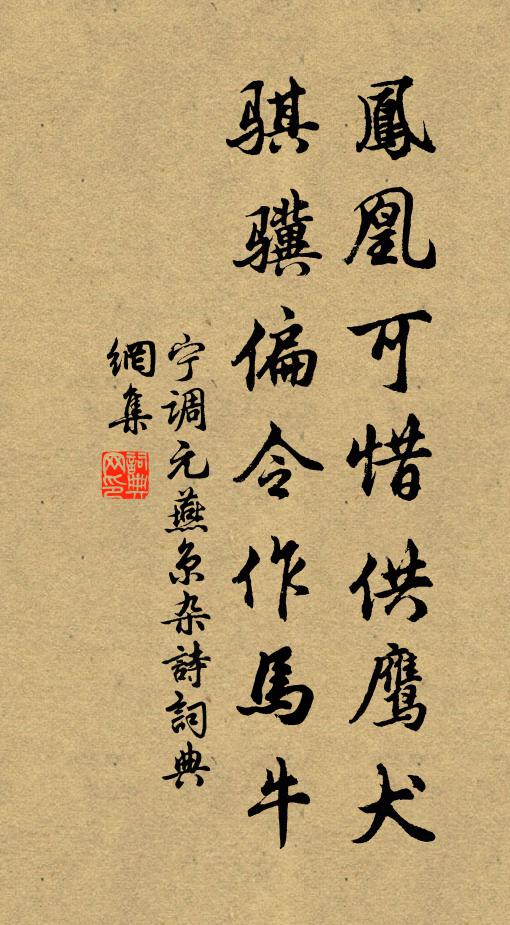 鳳凰可惜供鷹犬
骐骥偏令作馬牛
宁调元燕京杂詩詞典
網集
詞典网印